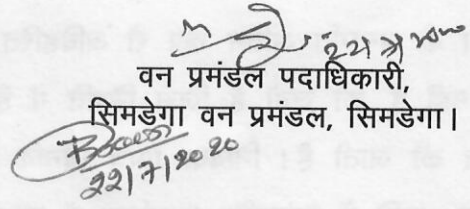 वन प्रमंडल पदाधिकारी,
सिमडेगा वन प्रमंडल, सिमडेगा।
22/7/2020